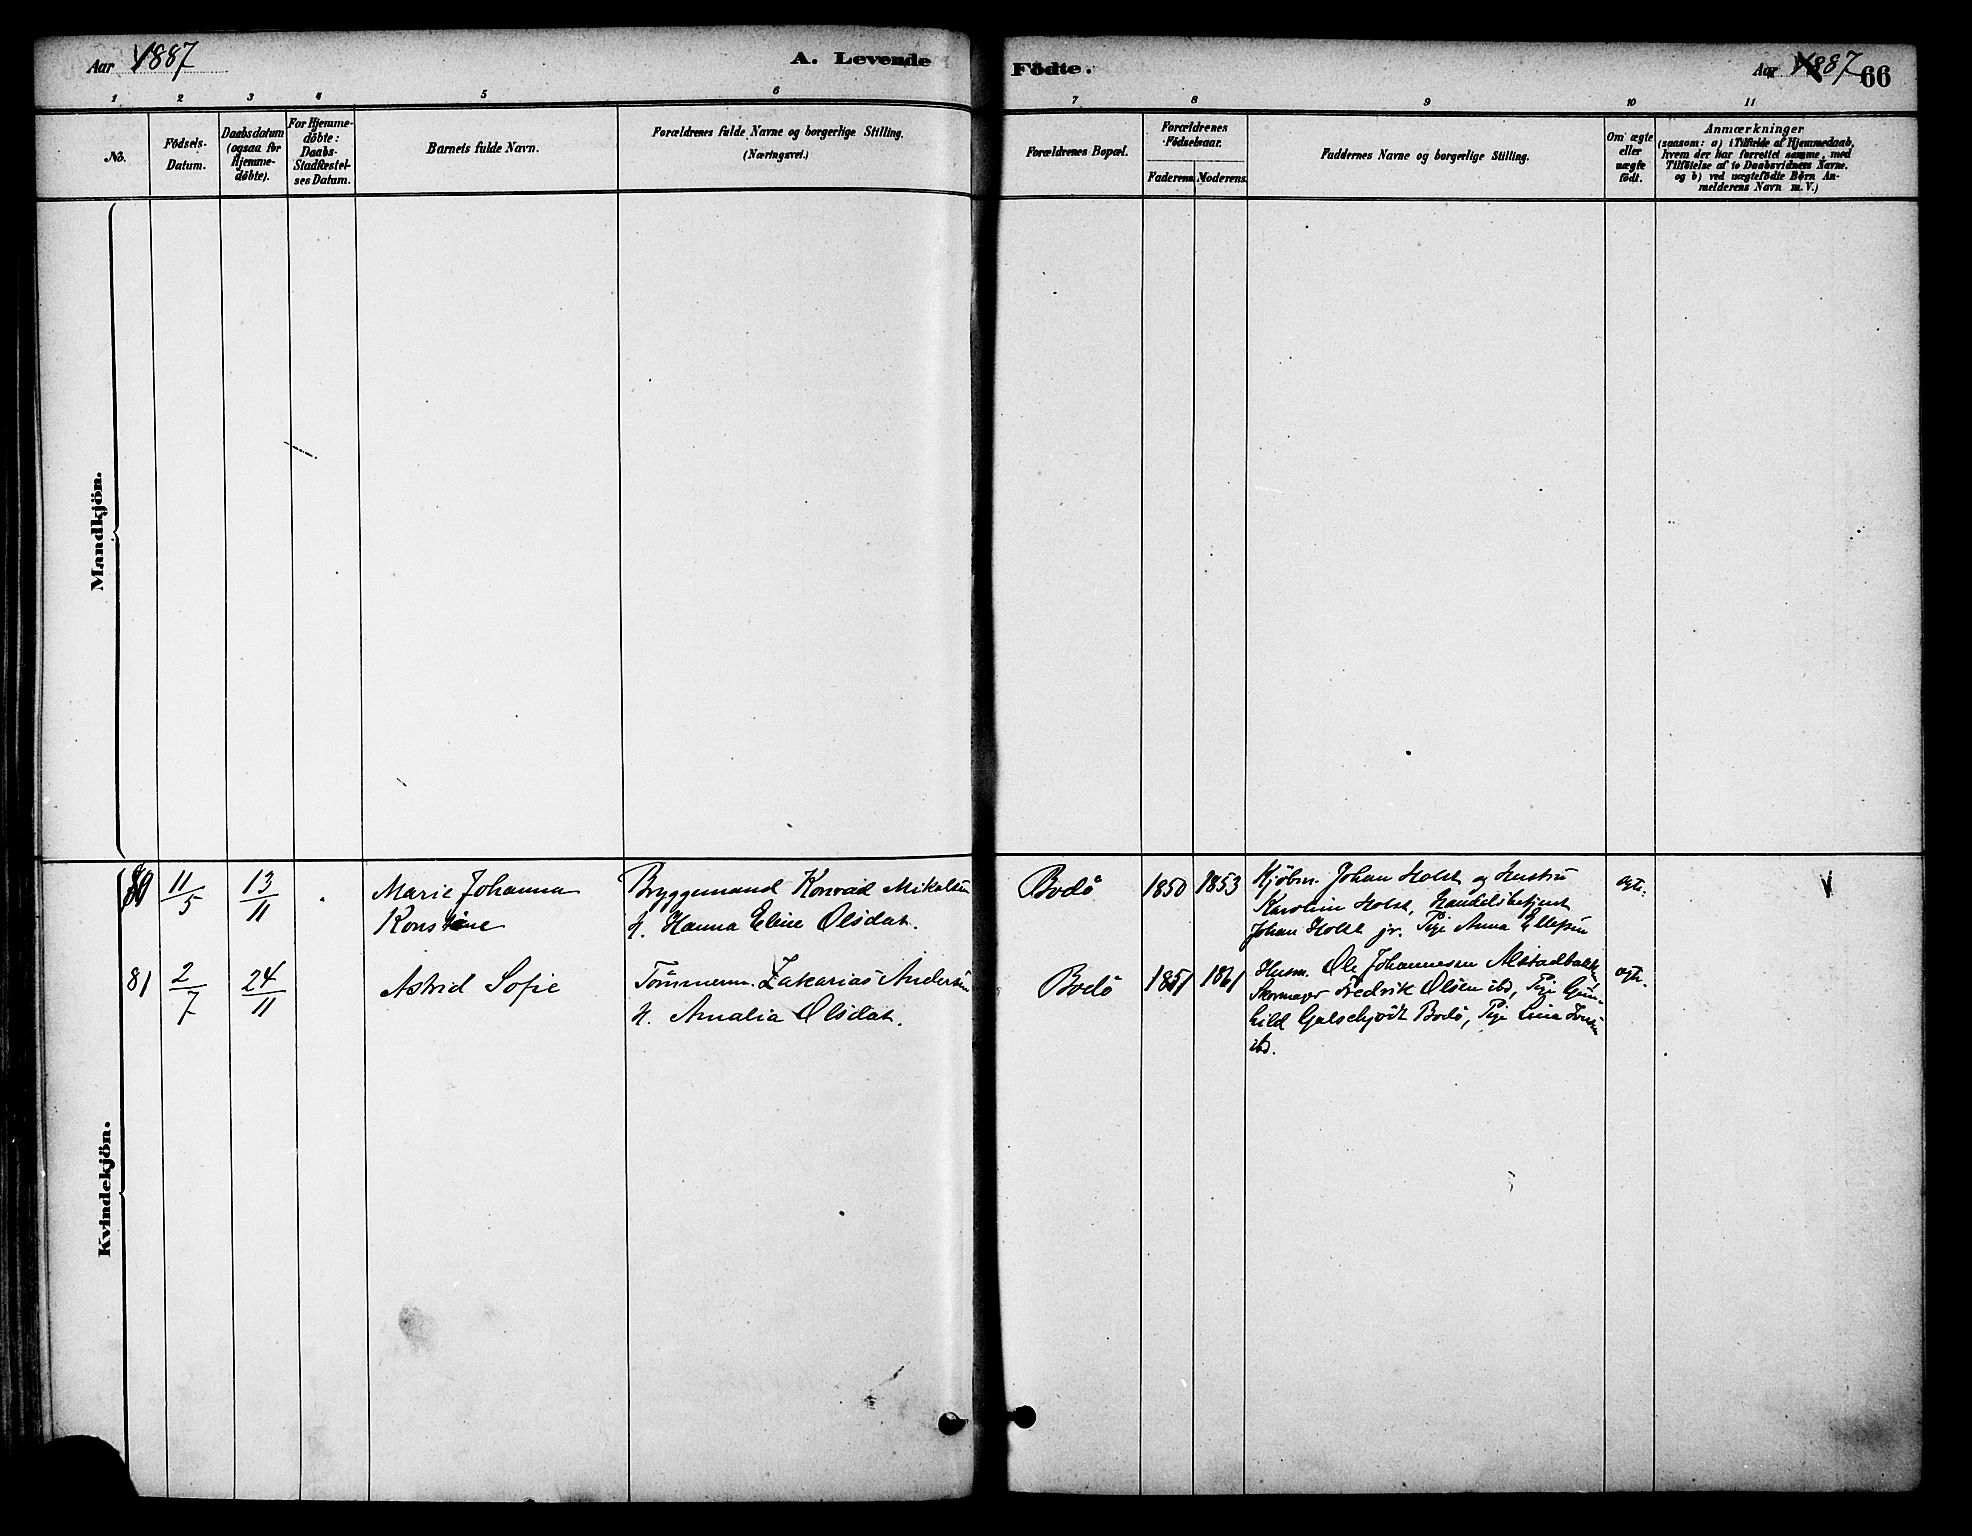 Aar 1887
A. Levende
Födte.
Aar 1887
66
1 2 3 4 5 6 7 8 9 10 11
No.
Födsels-
Datum.
Daabsdatum
(ogsaa for
Hjemme-
döbte).
For Hjemme-
döbte:
Daabs-
Stadfæstel-
ses Datum.
Barnets fulde Navn.
Forældrenes fulde Navne og borgerlige Stilling.
(Næringsvei.)
Forældrenes Bopæl.
Forældrenes
Födselsaar.
Faderens. Moderens.
Faddernes Navne og borgerlige Stilling.
Om ægte
eller
uægte
födt.
Anmærkninger
(saasom: a) i Tilfælde af Hjemmedaab,
hvem der har forrettet samme, med
Tilföielse af to Daabsvidners Navne.
og b) ved uægtefödte Börn An-
melderens Navn m. V.)
Mandkjön.
Kvindekjön.
80 11/5 13/11
Marie Johanna
Konstine
Bryggemand Konrad Mikalsen
H. Hanna Eline Olsdat.
Bodö 1850 1853
Kjöbm. Johan Holst og Hustru
Karoline Holst, Handelsbetjent
Johan Holst jr. Pige Anna Ellefsen
ægte.
V
81 2/7 24/11
Astrid Sofie
Tömmerm. Zakarias Andersen
H. Amalia Olsdat.
Bodö 1851 1861
Husm. Ole Johannesen Alstadbakken
Skomager Fredrik Olsen ibd, Pige Gun-
hild Galschjödt Bodö, Pige Lina
ibd.
ægte.